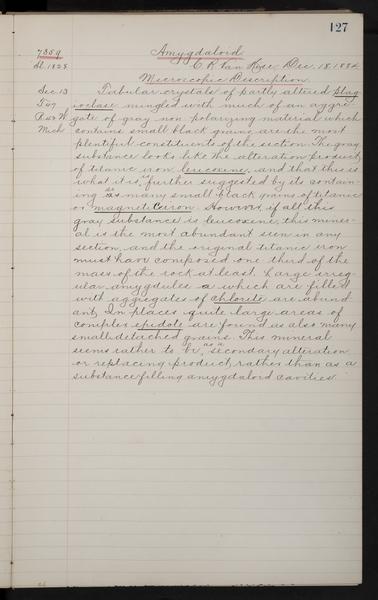 127
7359 Amygdaloid.
Sl. 1825 C. R. Van Hise, Dec. 18, 1884.
Microscopic Description.
Sec. 13 Tabular crystals of partly altered plag-
ioclase mingled with much of an aggre-
gate of gray non polarizing material which
Mich contains small black grains are the most
plentiful constituents of the section. The gray
substance looks like the alteration product
of titanic iron leucoxene, and that this is
what it is, is further suggested by its contain-
ing as many small black grains of titanic
or magnetic iron. However if all this
gray substance is leucoxene, this miner-
al is the most abundant seen in any
section, and the original titanic iron
must have composed one third of the
mass of the rock at least. Large irreg-
ular amygdules which are filled
with aggregates of chlorite are abund-
ant. In places quite large areas of
complex epidote are found as also many
small detached grains. This mineral
seems rather to be as a secondary alteration
or replacing product, rather than as a
substance filling amygdaloid cavities.